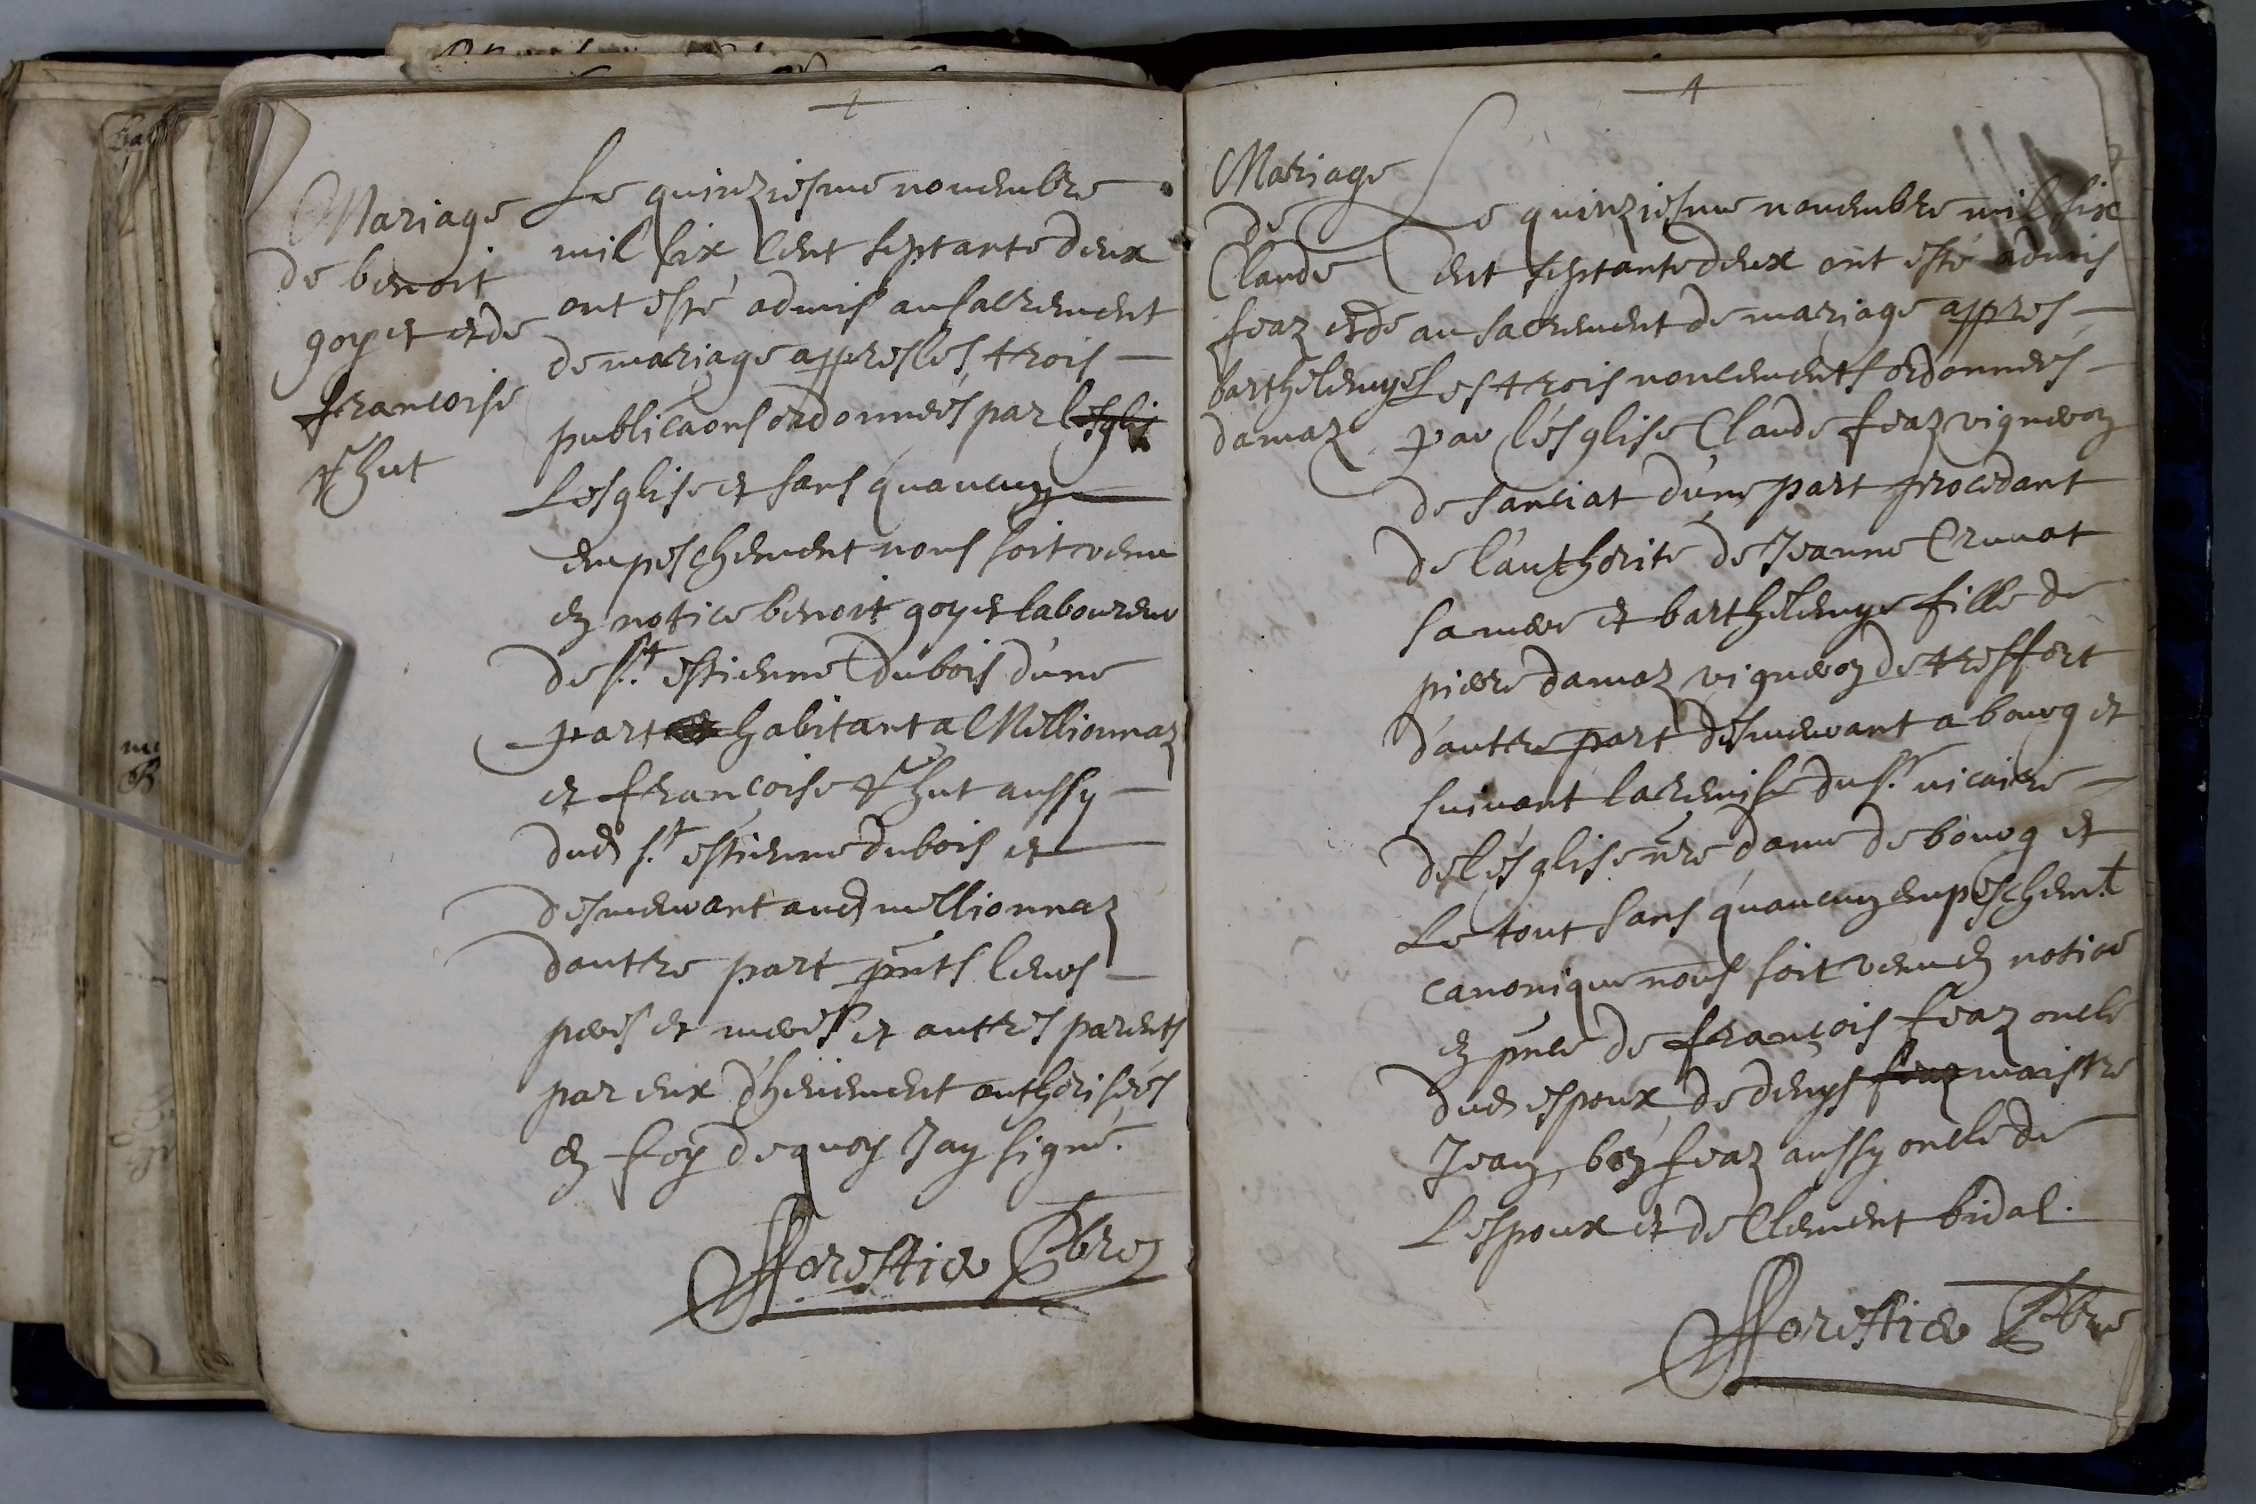 Mariage
de benoit
goyet et de
francoise
Le quinziesme nouembre
mil six Cent septante deux
ont esté admis au sacrement
de mariage appres les trois
publicaons ordonnées par lesglis
Lesglise et sans quaucung
empeschement nous soit venu
en notice benoit goyet laboureur
de st estienne dubois dune
part habitant a Millionnaz
et françoise aussy
dud st estienne dubois et
desmeurant aud millionnaz
dautre part pnts leurs
peres et meres et autres parents
par eux d'heuement authorisées
en foy de quoy Jay signé.
fforestier Pbre
Mariage
de
Claude
feaz et de
barthelemye
damaz
Le quinziesme nouembre mil six
Cent septante deux ont esté admis
au sacrement de mariage appres
Les trois noncements ordonnées
par l'esglise Claude feaz vigneron
de sanciat d'une part procedant
de l'authorité de Jeanne Cruuat
sa mere et barthelemye fille de
pierre damaz vigneron de treffort
d'autre part desmeurant a bourg et
suiuant la remise du sr vicaire
de l'esglise nre dame de bourg et
Le tout sans quaucung empeschemt
canonique nous soit venu en notice
en pnce de françois feaz oncle
dud espoux de denys feaz maistre
Jean, feaz aussy oncle de
Lespoux et de Clement bidal.
fforestier Pbre